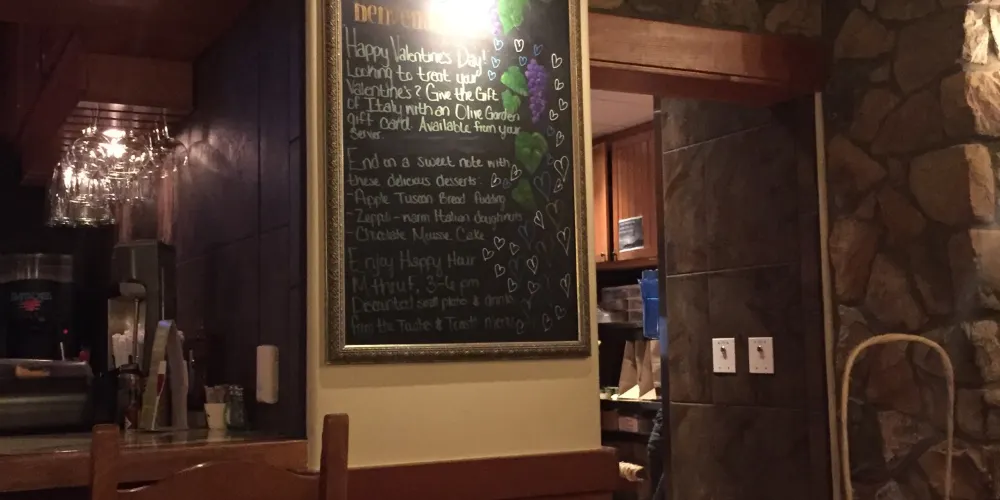 Happy Valentine's Day!
Looking to treat your
Valentine's? Give the Gift
of Italy with an Olive Garden
gift card. Available from your
server.
End on a sweet note with
these delicious desserts:
-Apple Tuscan Bread Pudding
-Zeppoli-warm Italian doughnuts
-Chocolate Mousse Cake
Enjoy Happy Hour
M thru F, 3-6 pm
Discounted small plates & drinks
from the Taste & Toast menu